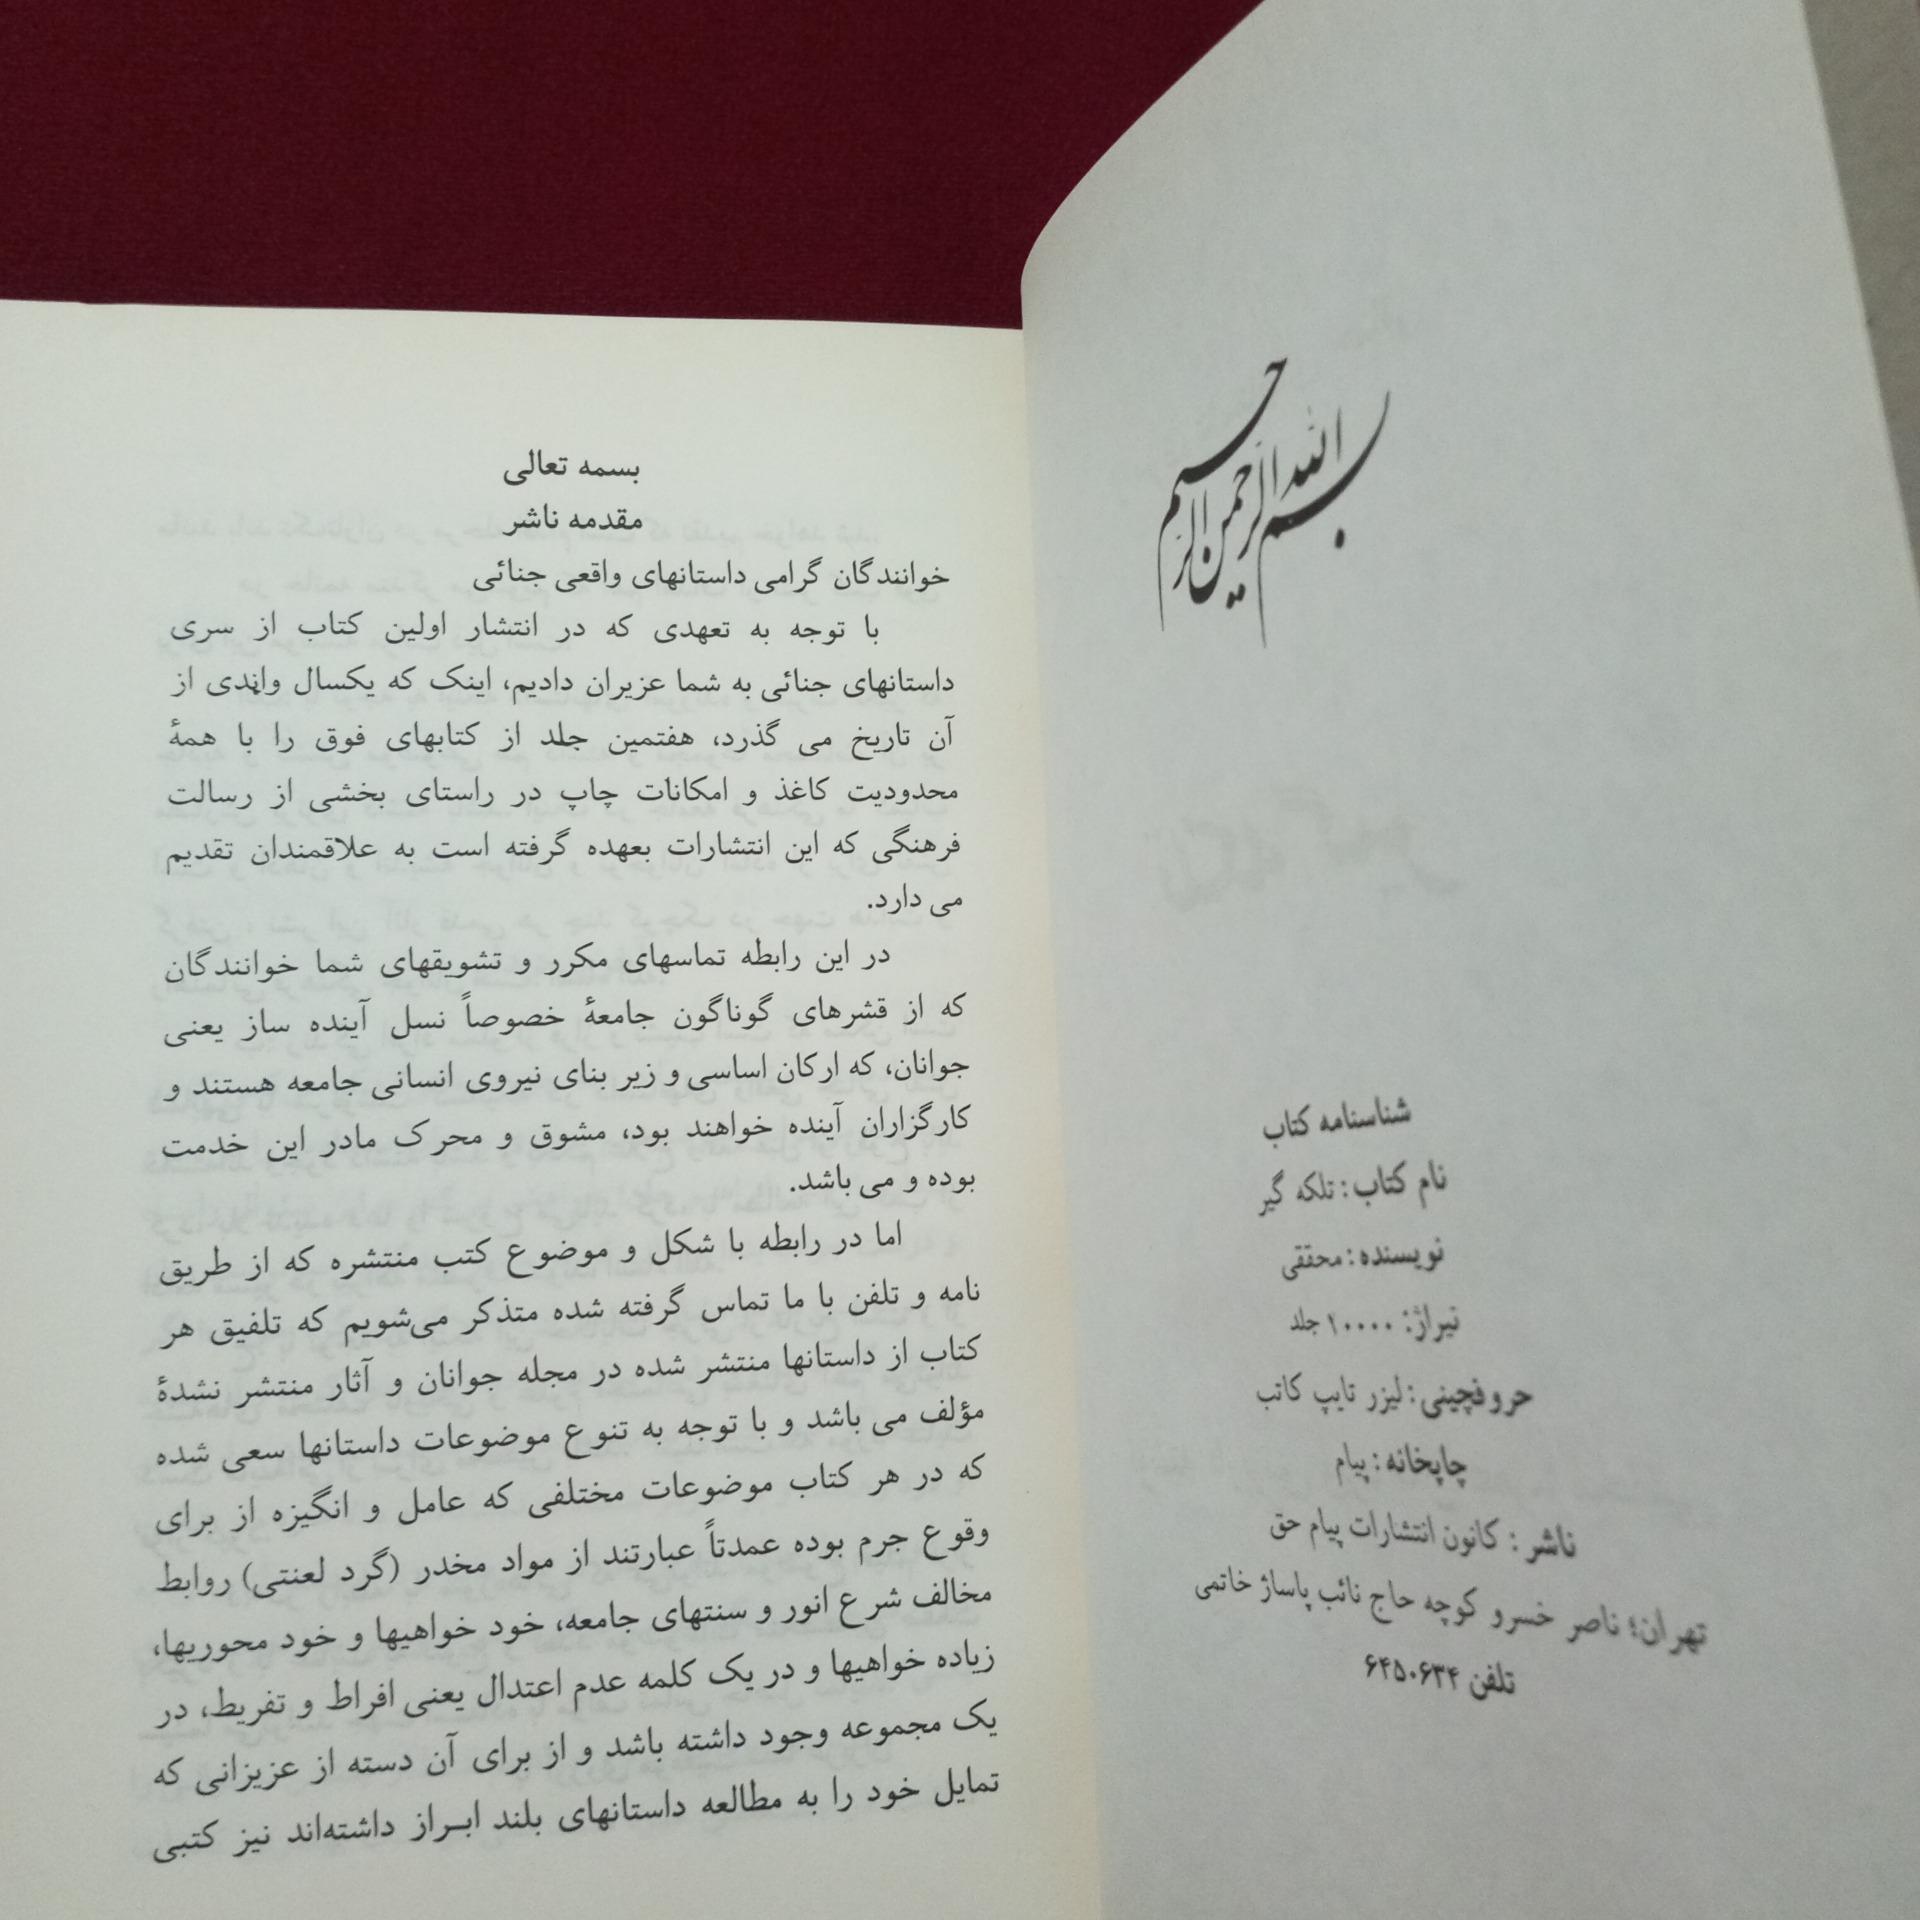 بسم الله الرحمن الرحیم
شناسنامه کتاب
نام کتاب: تلکه گیر
نویسنده: محققی
تیراژ: ۱۰۰۰۰ جلد
حروفچینی: لیزر تایپ کاتب
چاپخانه: پیام
ناشر: کانون انتشارات پیام حق
تهران؛ ناصر خسرو کوچه حاج نائب پاساژ خاتمی
تلفن ۶۴۵۰۶۳۴
بسمه تعالی
مقدمه ناشر
خوانندگان گرامی داستانهای واقعی جنائی
با توجه به تعهدی که در انتشار اولین کتاب از سری
داستانهای جنائی به شما عزیران دادیم، اینک که یکسال واندی از
آن تاریخ می گذرد، هفتمین جلد از کتابهای فوق را با همهٔ
محدودیت کاغذ و امکانات چاپ در راستای بخشی از رسالت
فرهنگی که این انتشارات بعهده گرفته است به علاقمندان تقدیم
می دارد.
در این رابطه تماسهای مکرر و تشویقهای شما خوانندگان
که از قشرهای گوناگون جامعهٔ خصوصاً نسل آینده ساز یعنی
جوانان، که ارکان اساسی و زیر بنای نیروی انسانی جامعه هستند و
کارگزاران آینده خواهند بود، مشوق و محرک مادر این خدمت
بوده و می باشد.
اما در رابطه با شکل و موضوع کتب منتشره که از طریق
نامه و تلفن با ما تماس گرفته شده متذکر می‌شویم که تلفیق هر
کتاب از داستانها منتشر شده در مجله جوانان و آثار منتشر نشدهٔ
مؤلف می باشد و با توجه به تنوع موضوعات داستانها سعی شده
که در هر کتاب موضوعات مختلفی که عامل و انگیزه از برای
وقوع جرم بوده عمدتاً عبارتند از مواد مخدر (گرد لعنتی) روابط
مخالف شرع انور و سنتهای جامعه، خود خواهیها و خود محوریها،
زیاده خواهیها و در یک کلمه عدم اعتدال یعنی افراط و تفریط، در
یک مجموعه وجود داشته باشد و از برای آن دسته از عزیزانی که
تمایل خود را به مطالعه داستانهای بلند ابراز داشته‌اند نیز کتبی